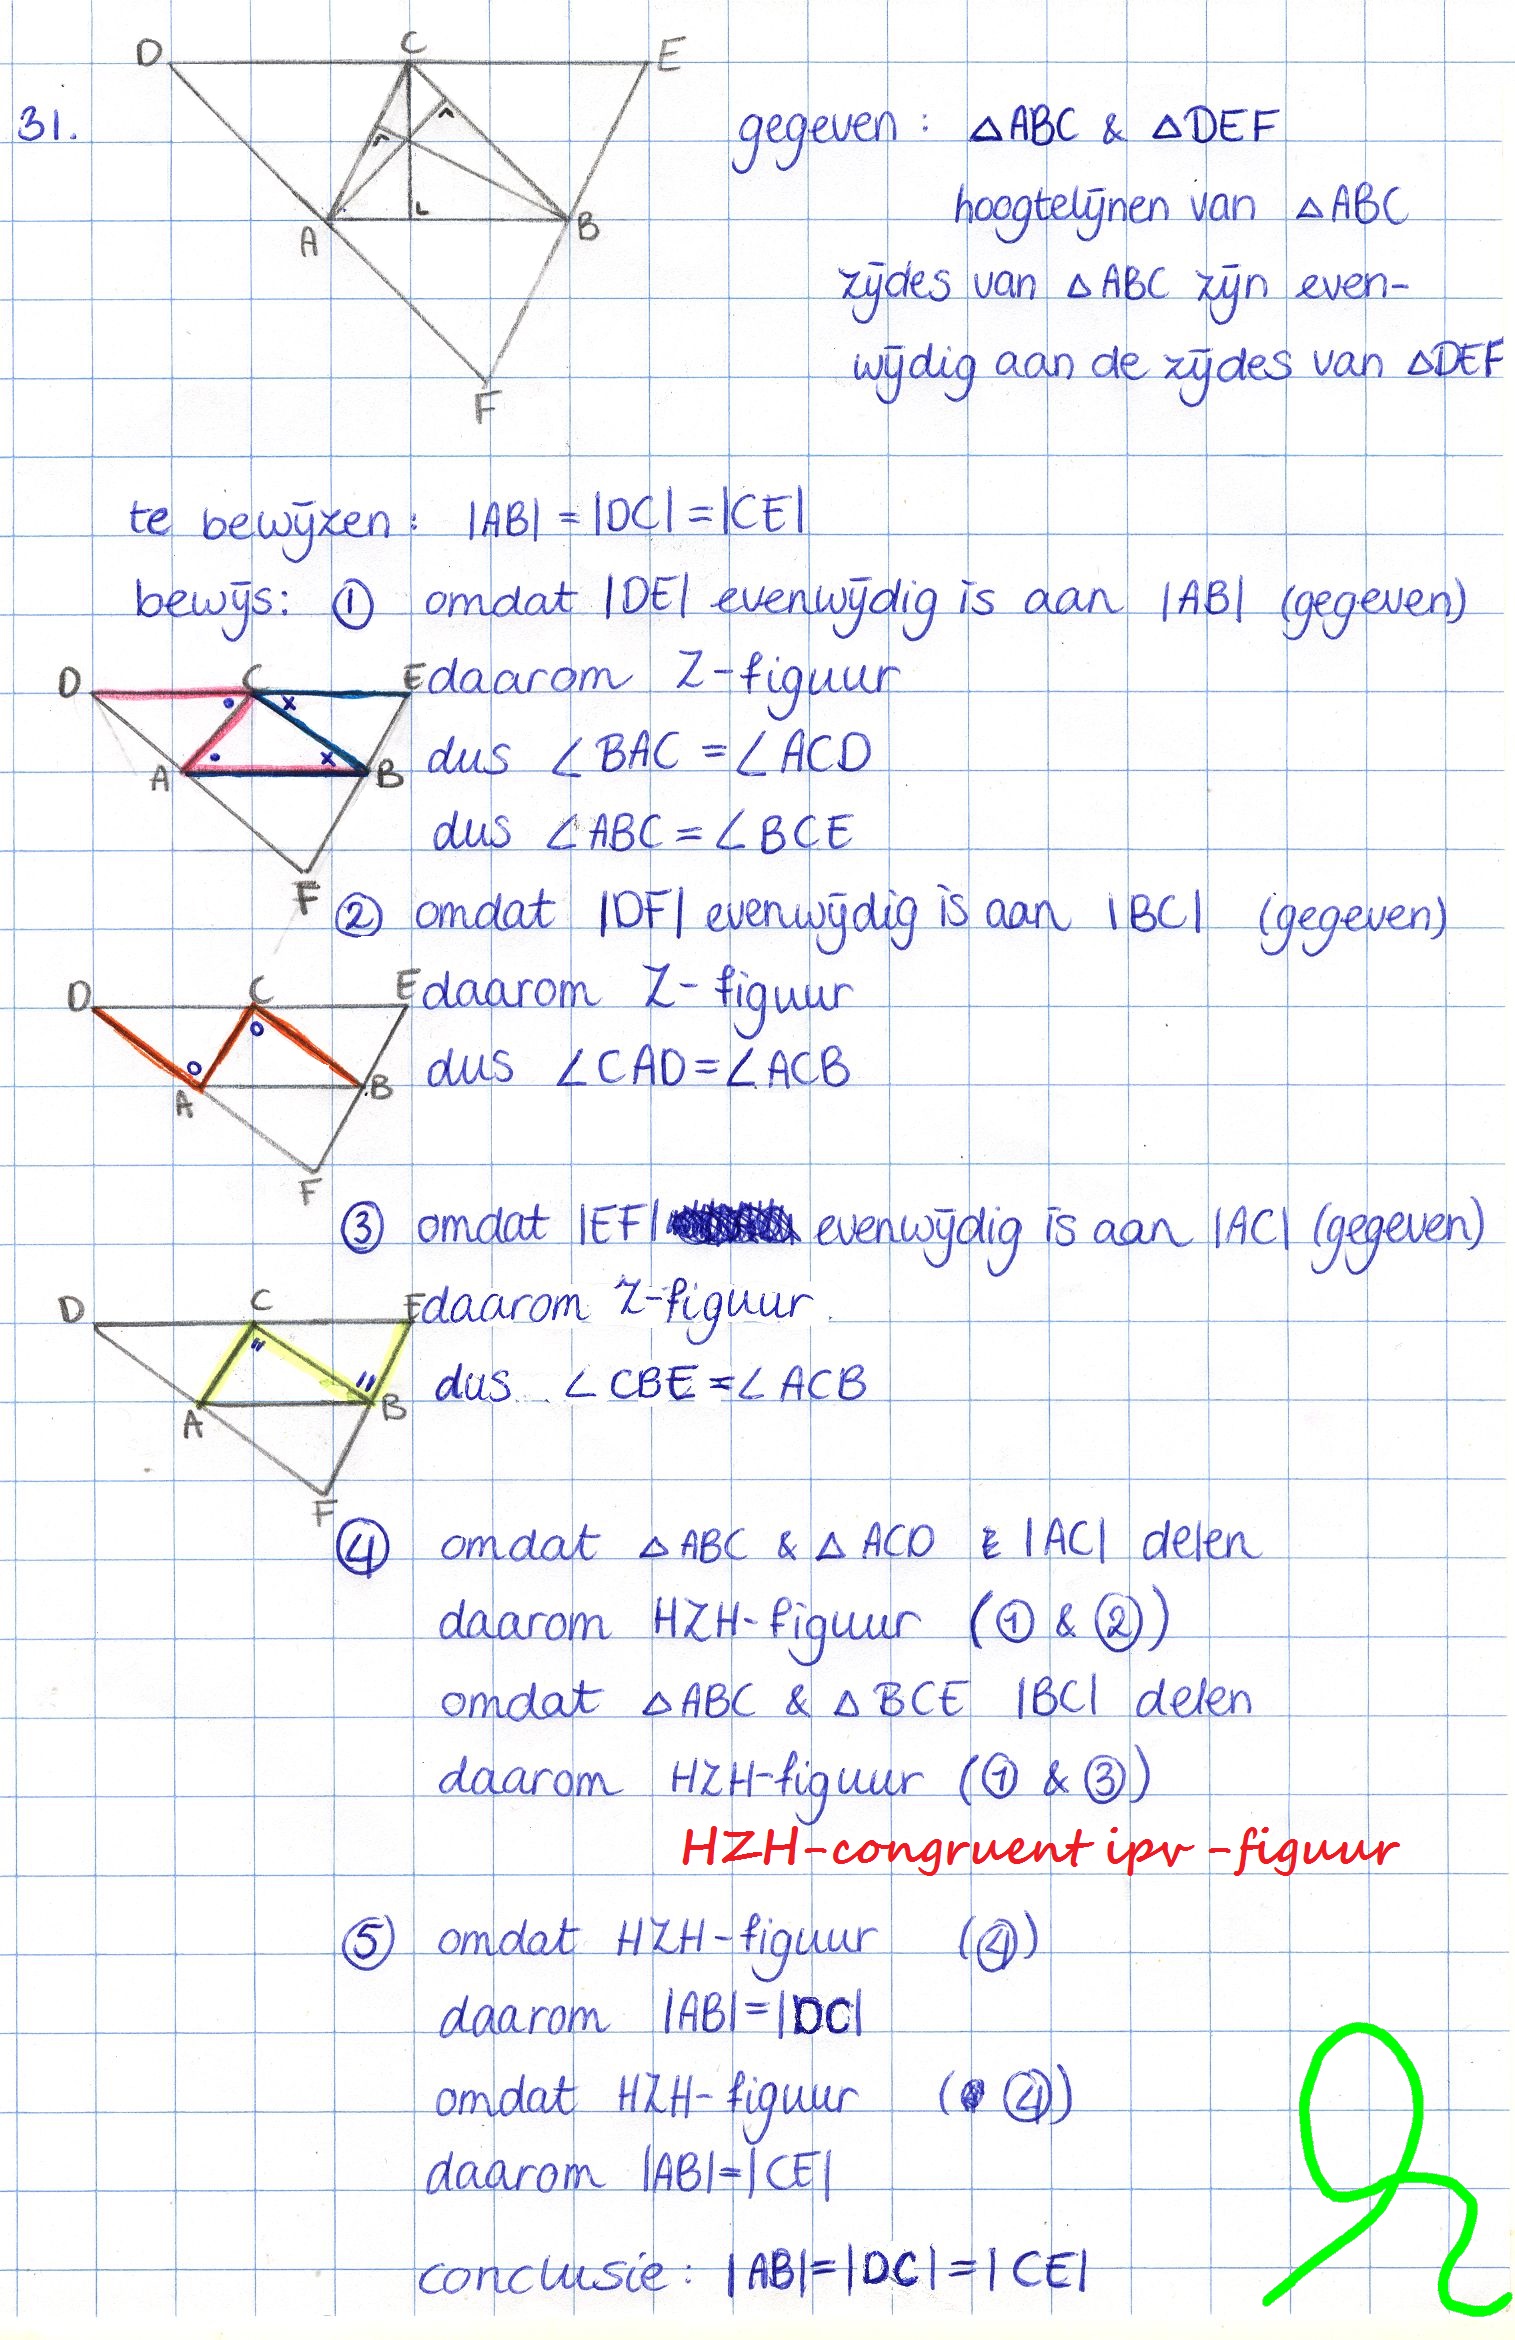 D C E
31.
A B
F
gegeven: △ABC & △DEF
hoogtelijnen van △ABC
zijdes van △ABC zijn even-
wijdig aan de zijdes van △DEF
te bewijzen: |AB| = |DC| = |CE|
bewijs: ① omdat |DE| evenwijdig is aan |AB| (gegeven)
D C E
daarom Z-figuur
A B
dus ∠BAC = ∠ACD
dus ∠ABC = ∠BCE
F
② omdat |DF| evenwijdig is aan |BC| (gegeven)
D C E
daarom Z-figuur
A B
dus ∠CAD = ∠ACB
F
③ omdat |EF| evenwijdig is aan |AC| (gegeven)
D C E
daarom Z-figuur.
A B
dus ∠CBE = ∠ACB
F
④ omdat △ABC & △ACD |AC| delen
daarom HZH-figuur (① & ②)
omdat △ABC & △BCE |BC| delen
daarom HZH-figuur (① & ③)
HZH-congruent ipv -figuur
⑤ omdat HZH-figuur (④)
daarom |AB| = |DC|
omdat HZH-figuur (④)
daarom |AB| = |CE|
conclusie: |AB| = |DC| = |CE|